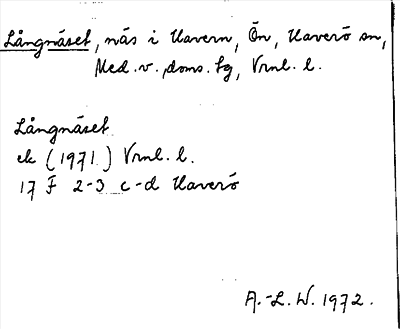 Långnäset, näs i Havern, Ön, Haverö sn,
Med. v. doms. tg, Vrnl. l.
Långnäset
ek (1971) Vrnl. l.
17 F 2-3 c-d Haverö
A.-L. W. 1972.